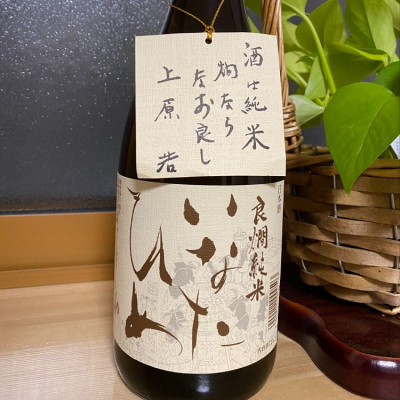 酒は純米
燗なら
なお良し
上原 浩
良燗純米
いなた
ひめ